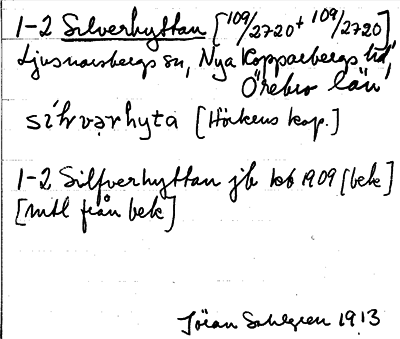 1-2 Silverhyttan [109/2720 + 109/2720]
Ljusnarsbergs sn, Nya Kopparbergs hd,
Örebro län
[Hörkens kap.]
1-2 Silfverhyttan jb 1909 [bek]
[mtl från bek]
Jöran Sahlgren 1913